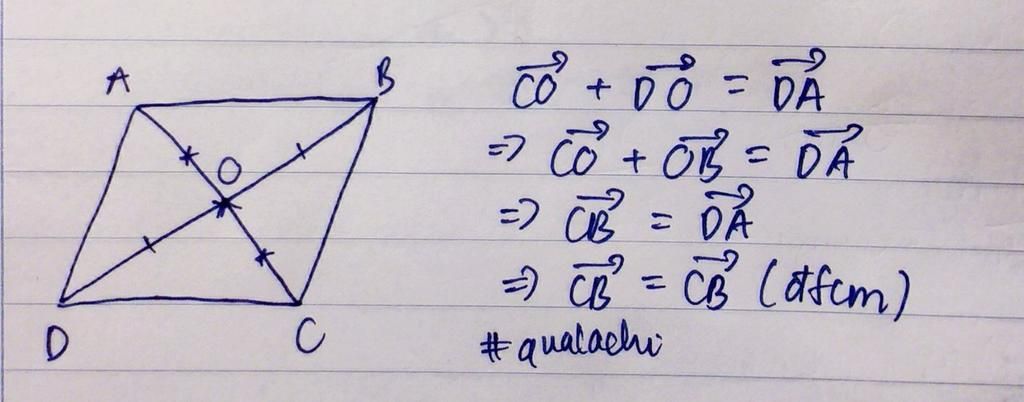 A
B
O
D
C
CO + DO = DA
=> CO + OB = DA
=> CB = DA
=> CB = CB (đfcm)
#qualachi